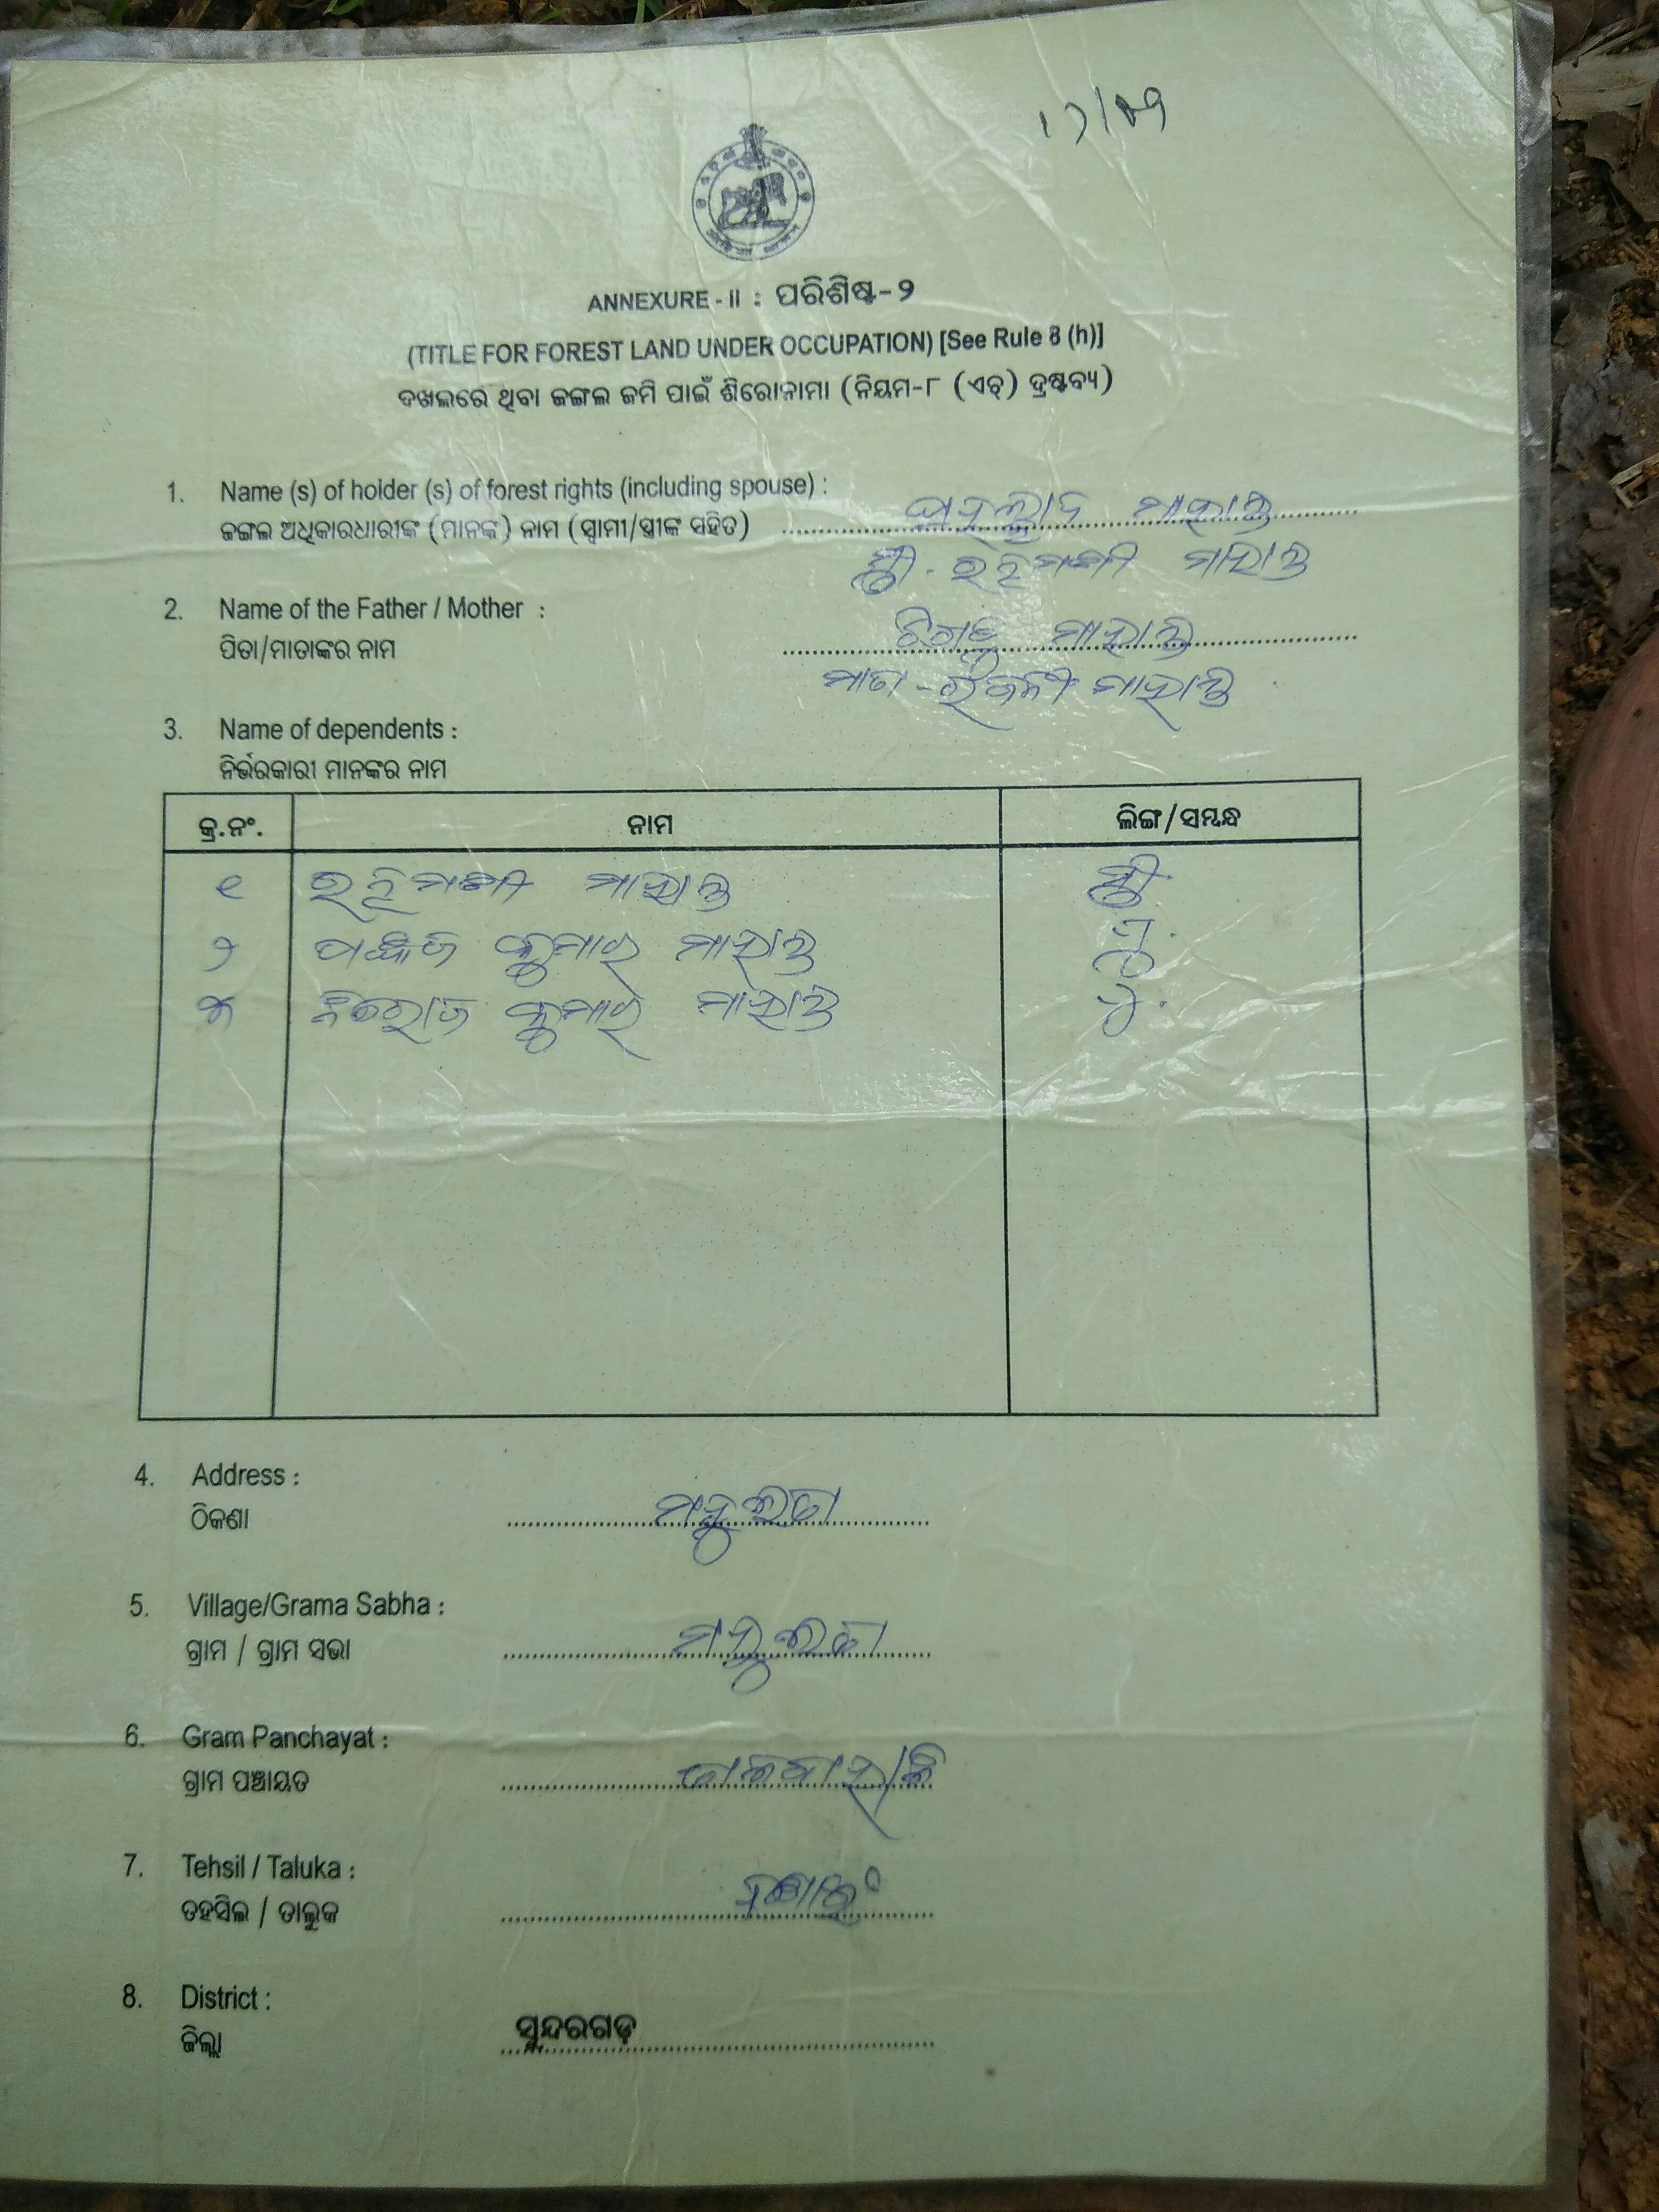 ANNEXURE - II : ପରିଶିଷ୍ଟ-୨
(TITLE FOR FOREST LAND UNDER OCCUPATION) [See Rule 8 (h)]
ଦଖଲରେ ଥିବା ଜଙ୍ଗଲ ଜମି ପାଇଁ ଶିରୋନାମା (ନିୟମ-୮ (ଏଚ୍) ଦ୍ରଷ୍ଟବ୍ୟ)
1. Name (s) of holder (s) of forest rights (including spouse) :
ଜଙ୍ଗଲ ଅଧିକାରଧାରୀଙ୍କ (ମାନଙ୍କ) ନାମ (ସ୍ୱାମୀ/ସ୍ତ୍ରୀଙ୍କ ସହିତ) ମାହାନ୍ତ
ସ୍ତ୍ରୀ - ମାହାନ୍ତ
2. Name of the Father / Mother :
ପିତା/ମାତାଙ୍କର ନାମ ମାହାନ୍ତ
ମାତା - ମାହାନ୍ତ
3. Name of dependents :
ନିର୍ଭରକାରୀ ମାନଙ୍କର ନାମ
କ୍ର.ନଂ. ନାମ ଲିଙ୍ଗ/ସମ୍ବନ୍ଧ
୧ ମାହାନ୍ତ ସ୍ତ୍ରୀ
୨ ପଙ୍କଜ କୁମାର ମାହାନ୍ତ ପୁ.
୩ କୁମାର ମାହାନ୍ତ ପୁ.
4. Address :
ଠିକଣା
5. Village/Grama Sabha :
ଗ୍ରାମ / ଗ୍ରାମ ସଭା
6. Gram Panchayat :
ଗ୍ରାମ ପଞ୍ଚାୟତ
7. Tehsil / Taluka :
ତହସିଲ / ତାଲୁକ
8. District :
ଜିଲ୍ଲା ସୁନ୍ଦରଗଡ଼